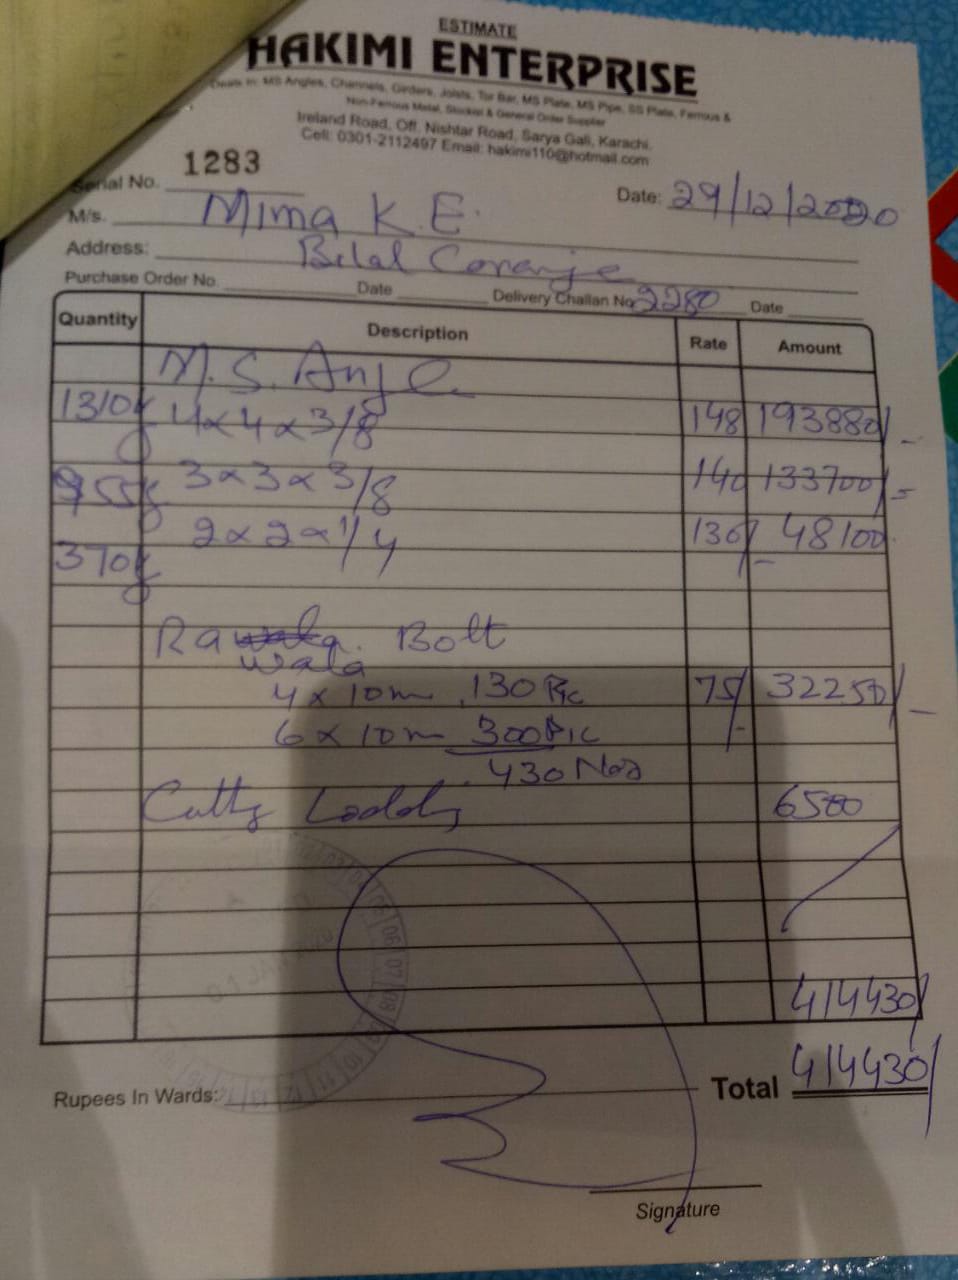 ESTIMATE
HAKIMI ENTERPRISE
Deals in: MS Angles, Channels, Girders, Joists, Tor Bar, MS Plate, MS Pipe, SS Plate, Ferrous &
Non-Ferrous Metal, Stockist & General Order Supplier
Ireland Road, Off. Nishtar Road, Sarya Gali, Karachi.
Cell: 0301-2112497 Email: hakimi110@hotmail.com
Serial No. 1283 Date: 29/12/2020
M/s. Mima K.E.
Address: Bilal
Purchase Order No. Date Delivery Challan No 2280 Date
Quantity Description Rate Amount
M.S. Angle
1310kg 4x4x3/8 148 193880/-
955kg 3x3x3/8 140 133700/=
370kg 2x2x1/4 130/- 48100
Ra Bolt
wala
4x10m 130 Pic 75/- 32250/-
6x10m 300 Pic
430 Nos
6500
414430/
Rupees In Wards: Total 414430/
Signature